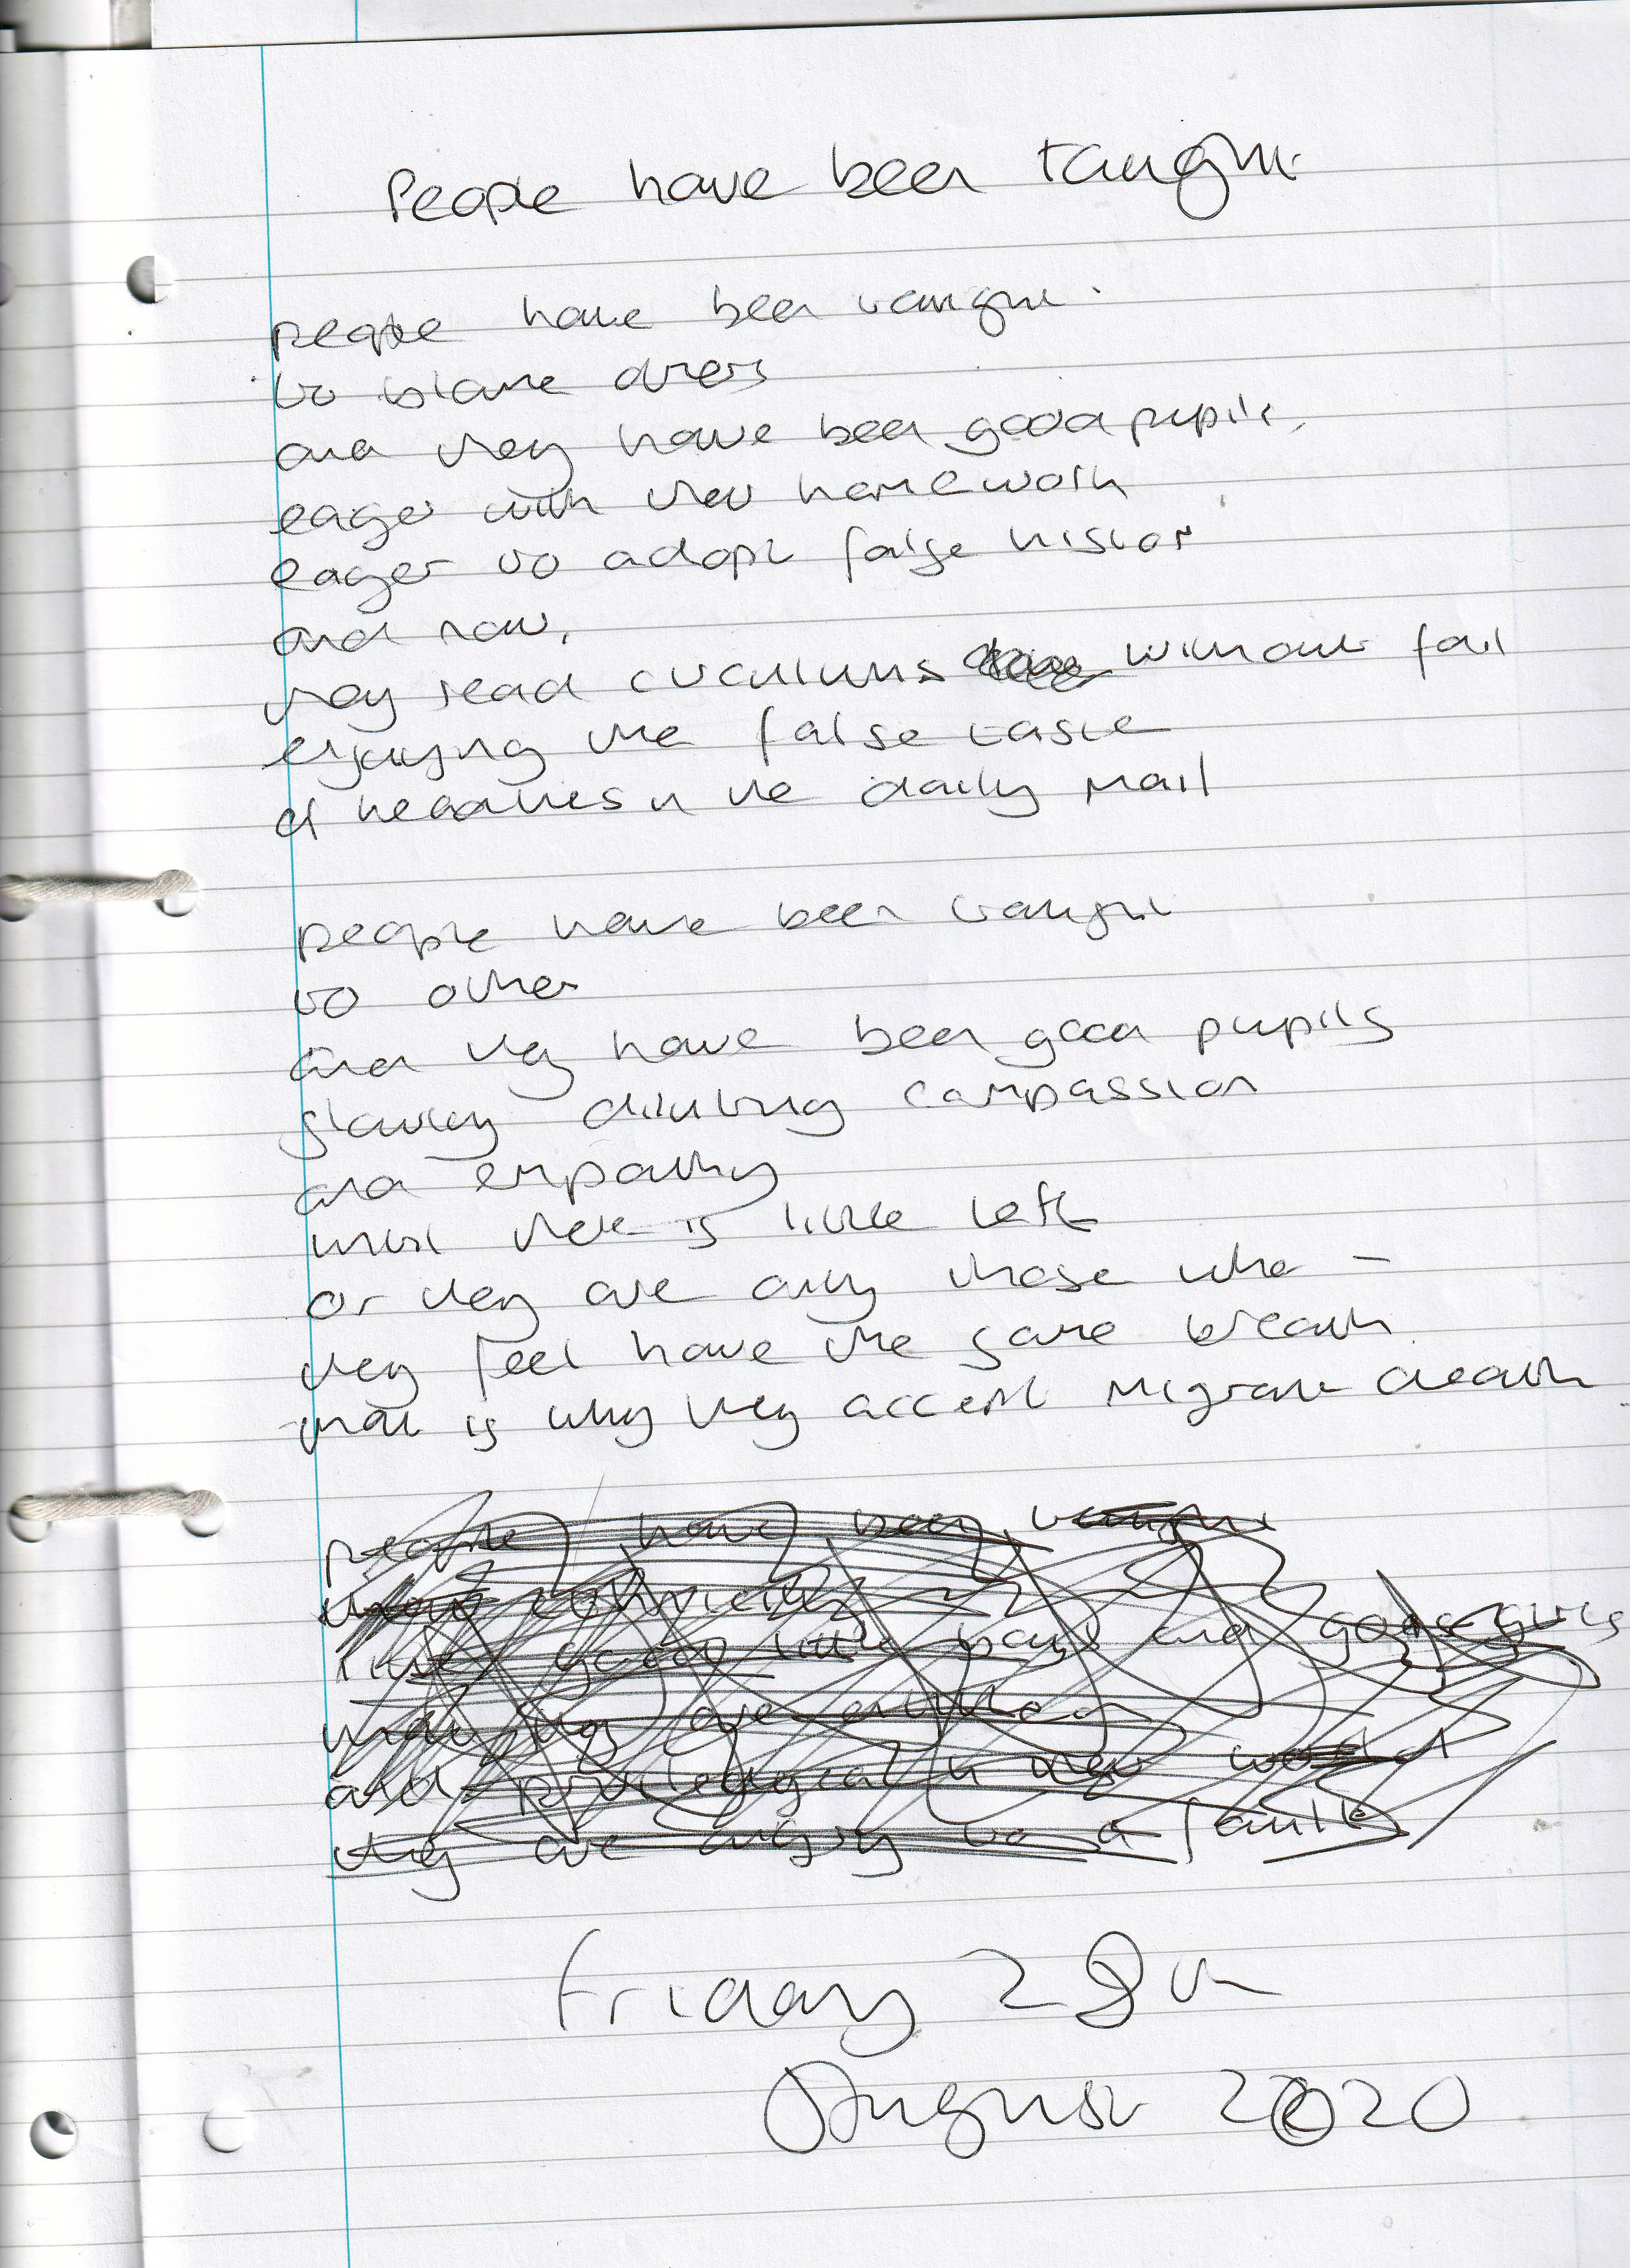 People have been taught
people have been taught
to blame others
and they have been good pupils,
eager with their homework
eager to adopt false histor
and now,
they read curculums without fail
enjoying the false taste
of headlines in the daily mail
people have been taught
to other
and they have been good pupils
slowley diluting compassion
and empathy
until there is little left
or they are only those who -
they feel have the same breath
that is why they accept migrant death
people have been taught
good little boys and girls
that they are
and in their world
they are angry to a fault
Friday 28th
August 2020